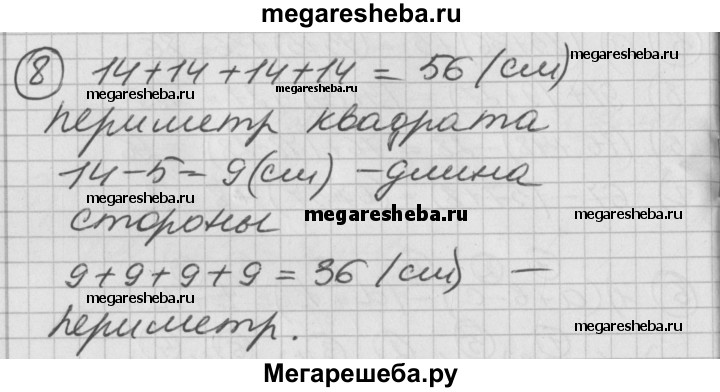 megaresheba.ru
8 14+14+14+14 = 56 (см) megaresheba.ru
megaresheba.ru megaresheba.ru
периметр квадрата
14-5=9(см) -длина
megaresheba.ru
стороны megaresheba.ru megaresheba.ru
9+9+9+9=36 (см) —
megaresheba.ru
периметр. megaresheba.ru
Мегарешеба.ру